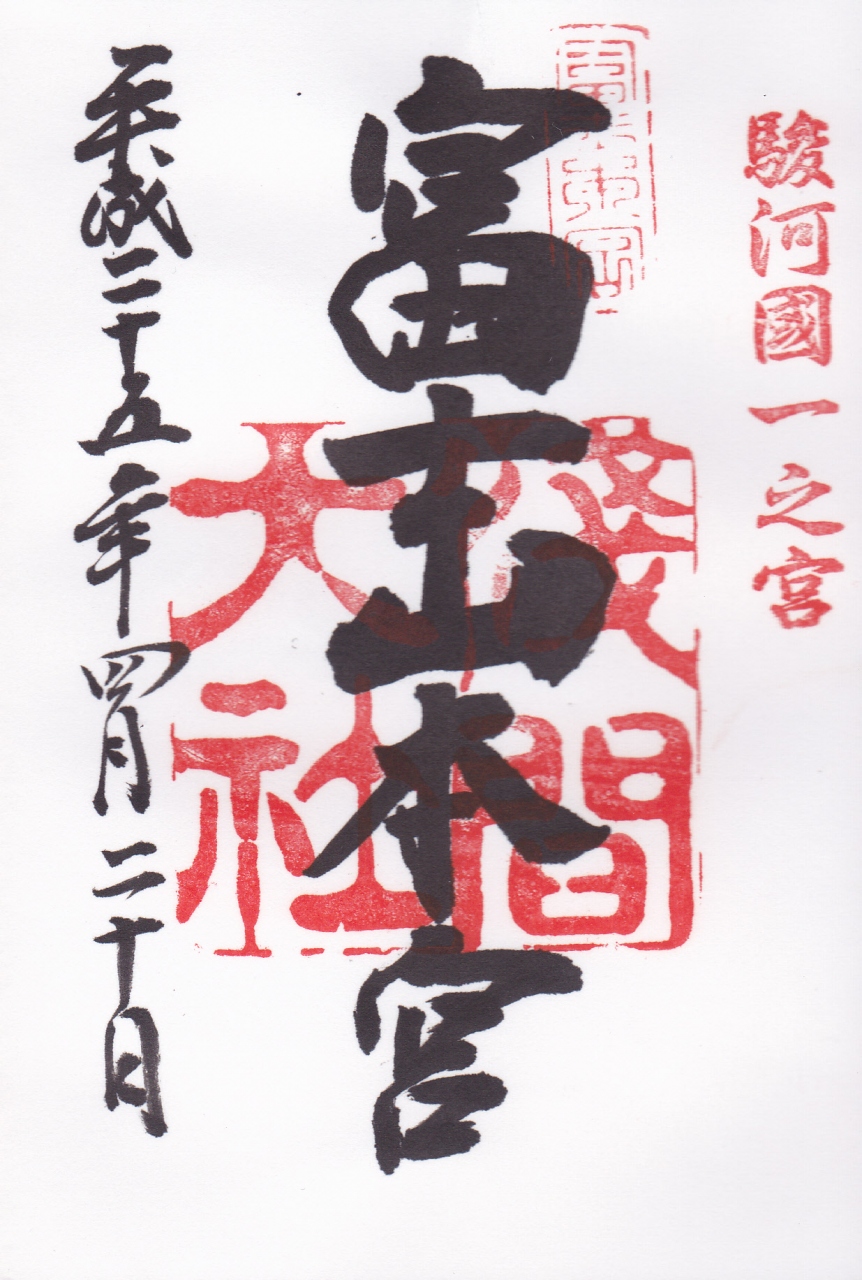 駿河國一之宮
富士山本宮
淺間大社
平成二十五年四月二十日